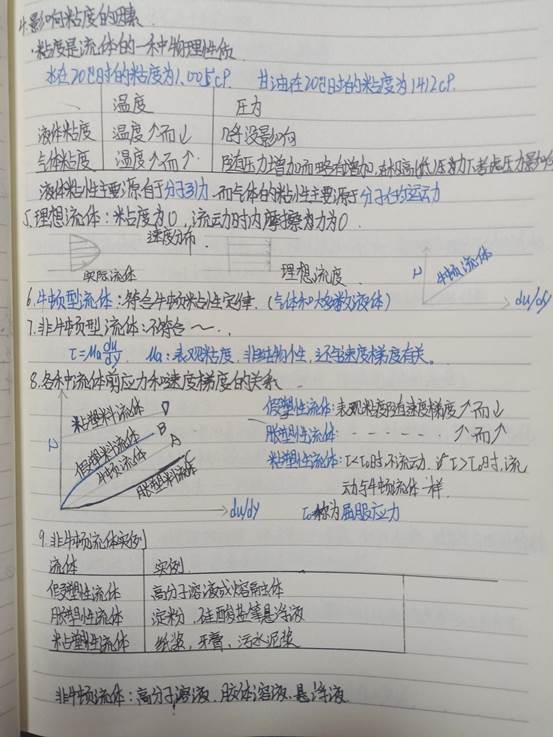 4.影响粘度的因素
·粘度是流体的一种物理性质
水在20℃时的粘度为1.005cP. 甘油在20℃时的粘度为1412cP.
温度 压力
液体粘度 温度↑而↓ 几乎没影响
气体粘度 温度↑而↑. 随压力增加而略有增加,在极高(低)压力下考虑压力影响
液体粘性主要源自于分子引力,而气体的粘性主要源于分子的运动
5.理想流体:粘度为0,流动时内摩擦力为0.
速度分布.
实际流体 理想流度 τ 牛顿流体 du/dy
6.牛顿型流体:符合牛顿粘性定律.(气体和大多数液体)
7.非牛顿型流体:不符合~..
τ=μa du/dy. μa:表观粘度,非纯物性,还与速度梯度有关。
8.各种流体剪应力和速度梯度的关系
τ 粘塑料流体 D 假塑料流体 B 牛顿流体 A 胀塑料流体 C du/dy
假塑性流体:表观粘度随速度梯度↑而↓
胀塑性流体: - - - - - - ↑而↑
粘塑性流体:τ<τ0时不流动.当τ>τ0时,流
动与牛顿流体一样.
τ0称为屈服应力
9.非牛顿流体实例
流体 实例
假塑性流体 高分子溶液或熔融体
胀塑性流体 淀粉,硅酸盐等悬浮液
粘塑性流体 纸浆,牙膏,污水泥浆
非牛顿流体:高分子溶液.胶体溶液.悬浮液